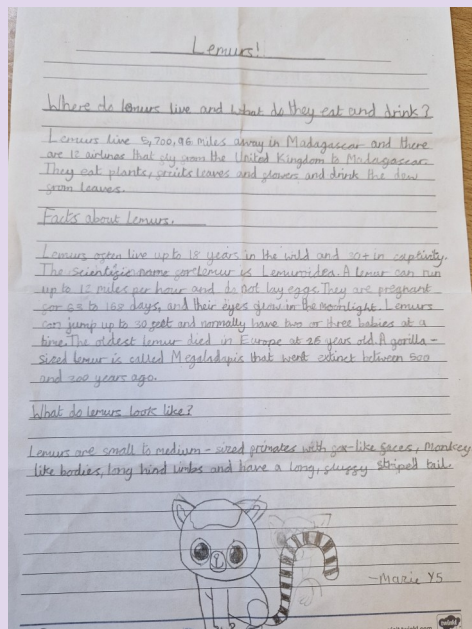 Lemurs!
Where do lemurs live and what do they eat and drink?
Lemurs live 5,700,96 miles away in Madagascar and there
are 12 airlines that fly from the United Kingdom to Madagascar.
They eat plants, fruits leaves and flowers and drink the dew
from leaves.
Facts about Lemurs.
Lemurs often live up to 18 years in the wild and 30+ in captivity.
The scientific name for Lemur is Lemuroidea. A lemur can run
up to 12 miles per hour and do not lay eggs. They are pregnant
for 62 to 168 days, and their eyes glow in the moonlight. Lemurs
can jump up to 30 feet and normally have two or three babies at a
time. The oldest lemur died in Europe at 28 years old. A gorilla-
sized lemur is called Megaladapis that went extinct between 500
and 200 years ago.
What do lemurs look like?
Lemurs are small to medium-sized primates with fox-like faces, monkey
like bodies, long hind limbs and have a long, fluffy striped tail.
-Marie Y5